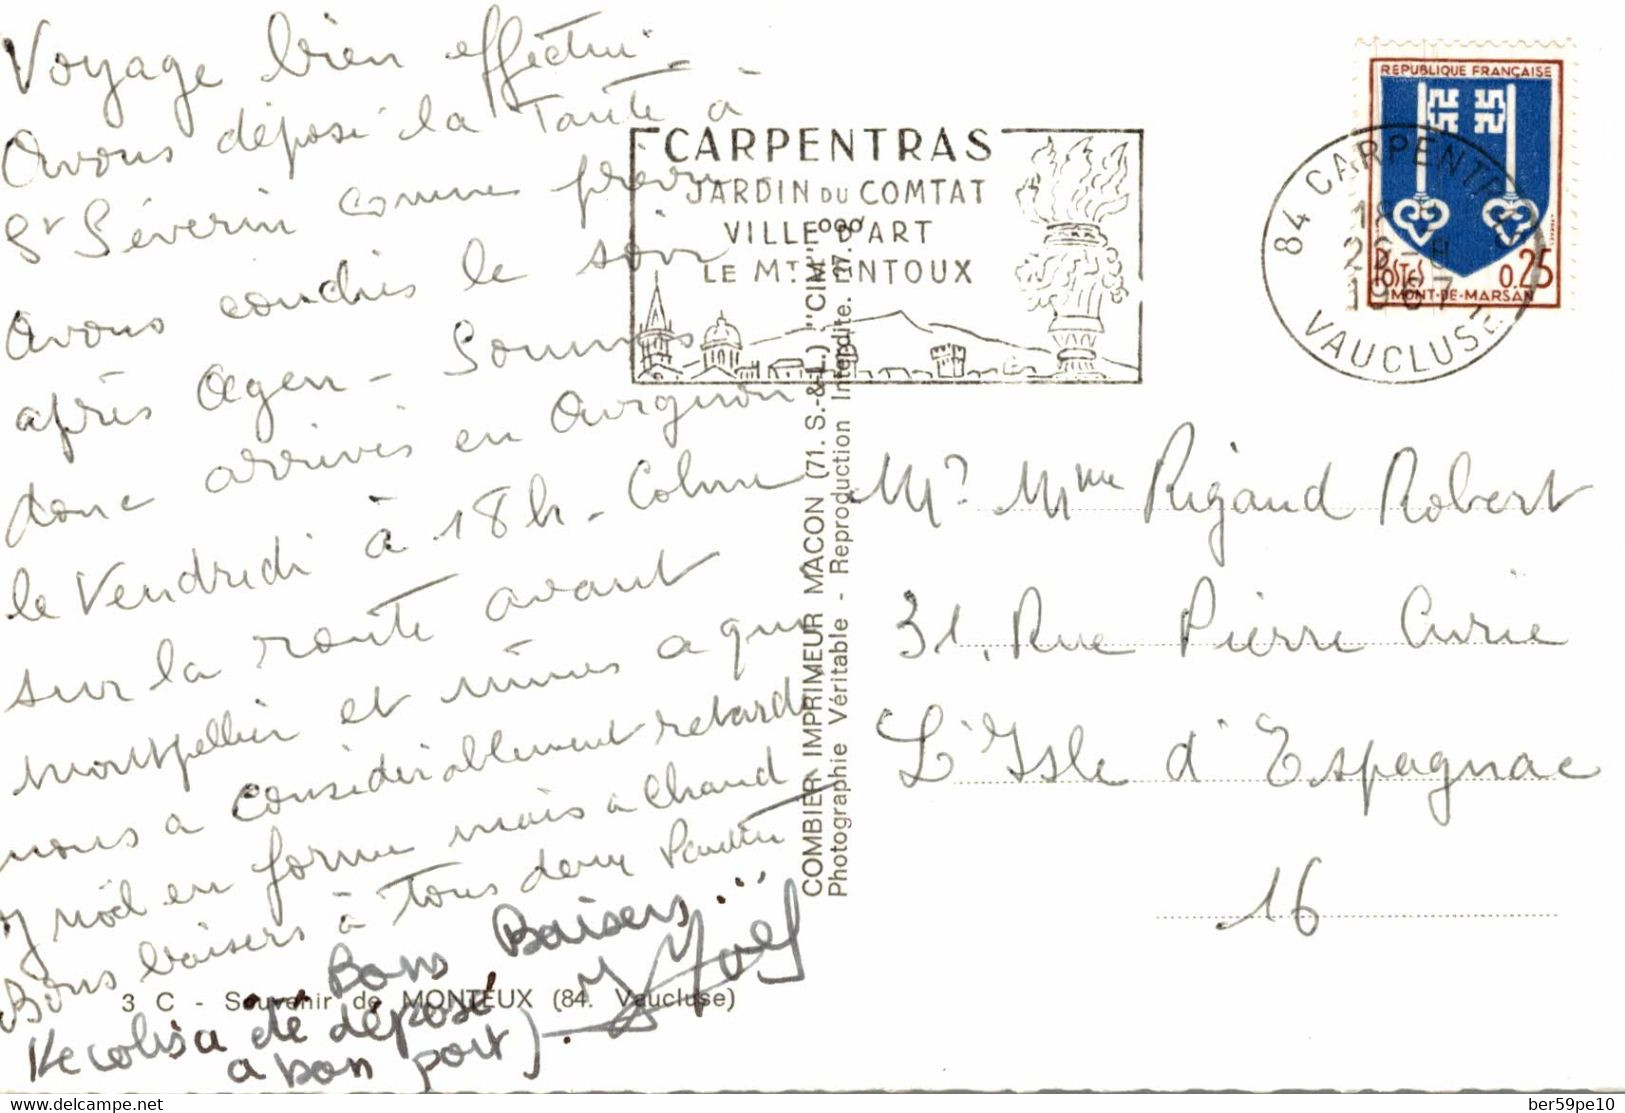 Voyage bien effectué -
Avons déposé la Tante à
St Séverin comme prévu -
Avons couchés le soir
après Agen - Sommes
donc arrivés en Avignon
le Vendredi à 18h -
sur la route avant
Montpellier et Nîmes a qui
nous a considérablement retardé
Noël en forme mais a chaud
Bons baisers à tous deux
Bons Baisers...
Yves
le colis a été déposé
a bon port).
3 C - Souvenir de MONTEUX (84. Vaucluse)
COMBIER IMPRIMEUR MACON (71. S.-&-L.) "CIM"
Photographie Véritable - Reproduction Interdite.
CARPENTRAS
JARDIN DU COMTAT
VILLE D'ART
LE MT VENTOUX
84 CARPENTRAS
18H
26 - 8
1967
VAUCLUSE
REPUBLIQUE FRANÇAISE
POSTES
0.25
MONT-DE-MARSAN
Mr Mme Rigaud Robert
31, Rue Pierre Curie
L'Isle d'Espagnac
16
delcampe.net
ber59pe10